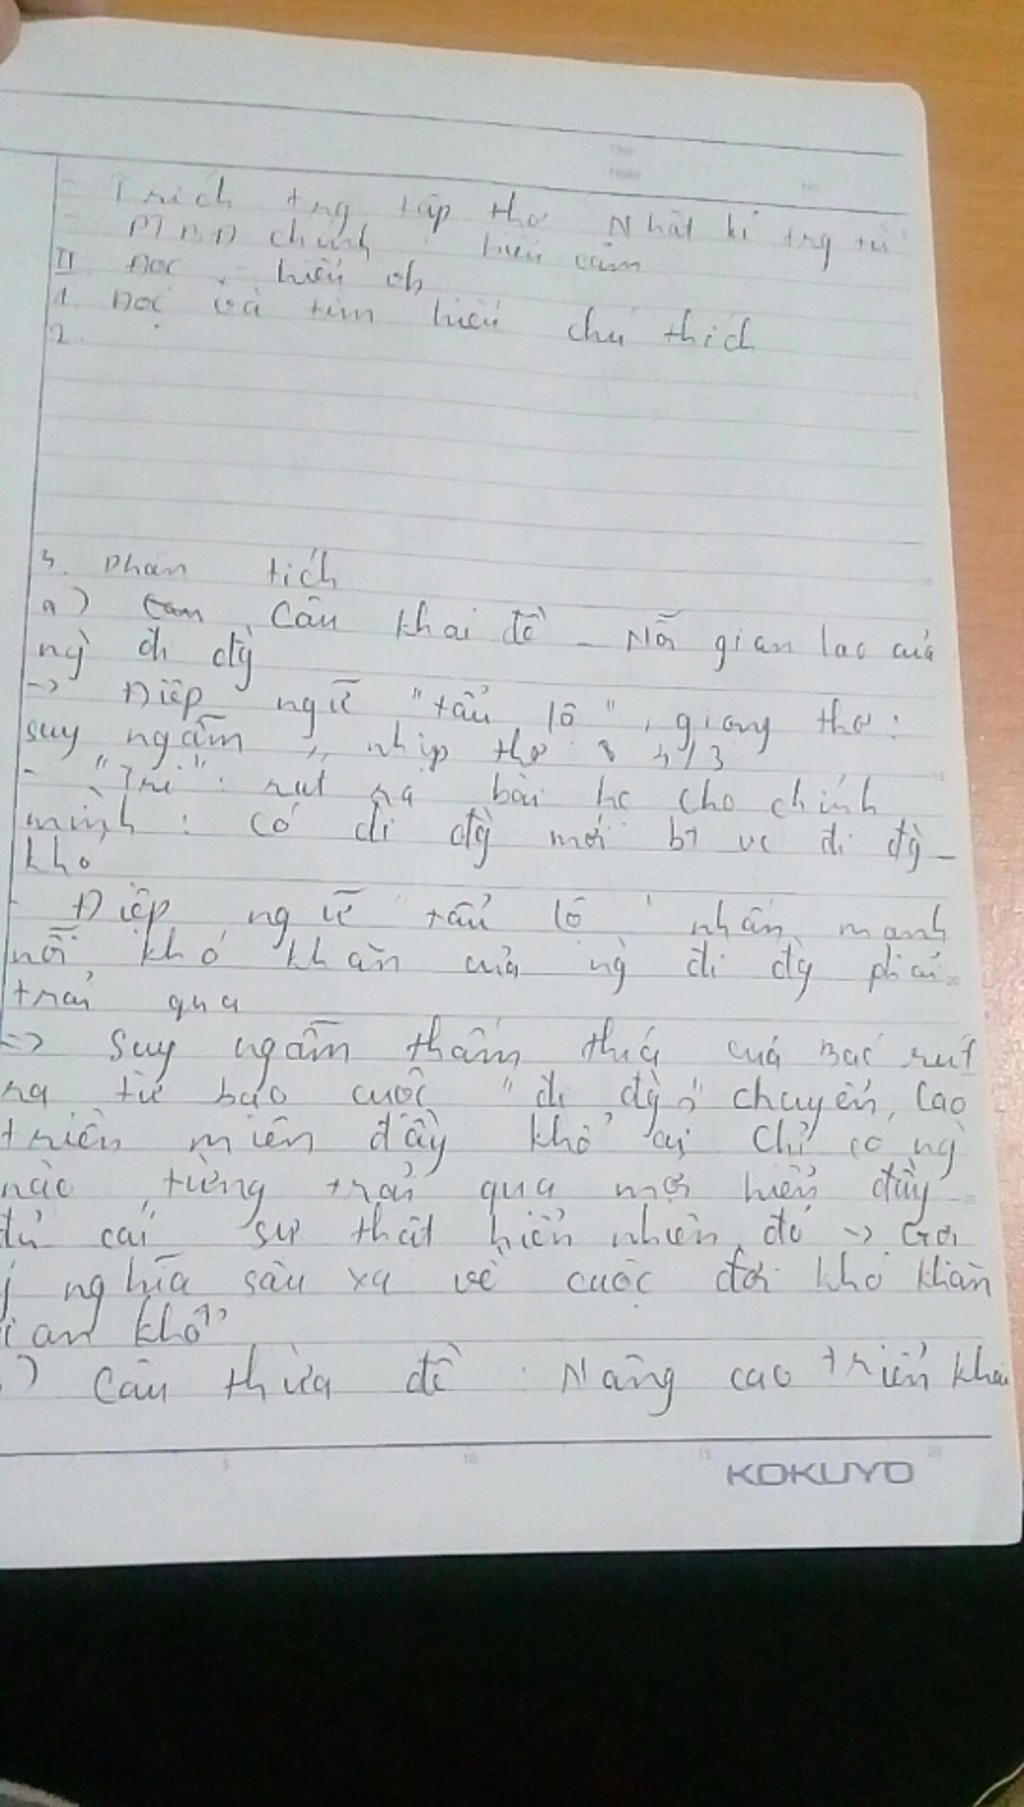 - Trích trg tập thơ Nhật kí trg tù
- PTBĐ chính : biểu cảm
II. Đọc, hiểu
1. Đọc và tìm hiểu chú thích
2.
3. Phân tích
a) Câu khai đề - Nỗi gian lao của
ng` đi đg`
-> Điệp ngữ "tẩu lộ", giọng thơ:
suy ngẫm, nhịp thơ 4/3
- "Tri": rút ra bài hc cho chính
mình: có đi đg` mới bt vc đi đg`
khó
- Điệp ngữ "tẩu lộ" nhấn mạnh
nỗi khó khăn của ng` đi đg` phải
trải qua
=> Suy ngẫm thấm thía của Bác rút
ra từ bao cuộc "đi đg`" chuyển lao
triền miên đầy khổ ải. Chỉ có ng`
nào từng trải qua mới hiểu đầy
đủ cái sự thật hiển nhiên đó -> Gợi
ý nghĩa sâu xa về cuộc đời khó khăn
gian khổ
) Câu thừa đề : Nâng cao triển khai
KOKUYO